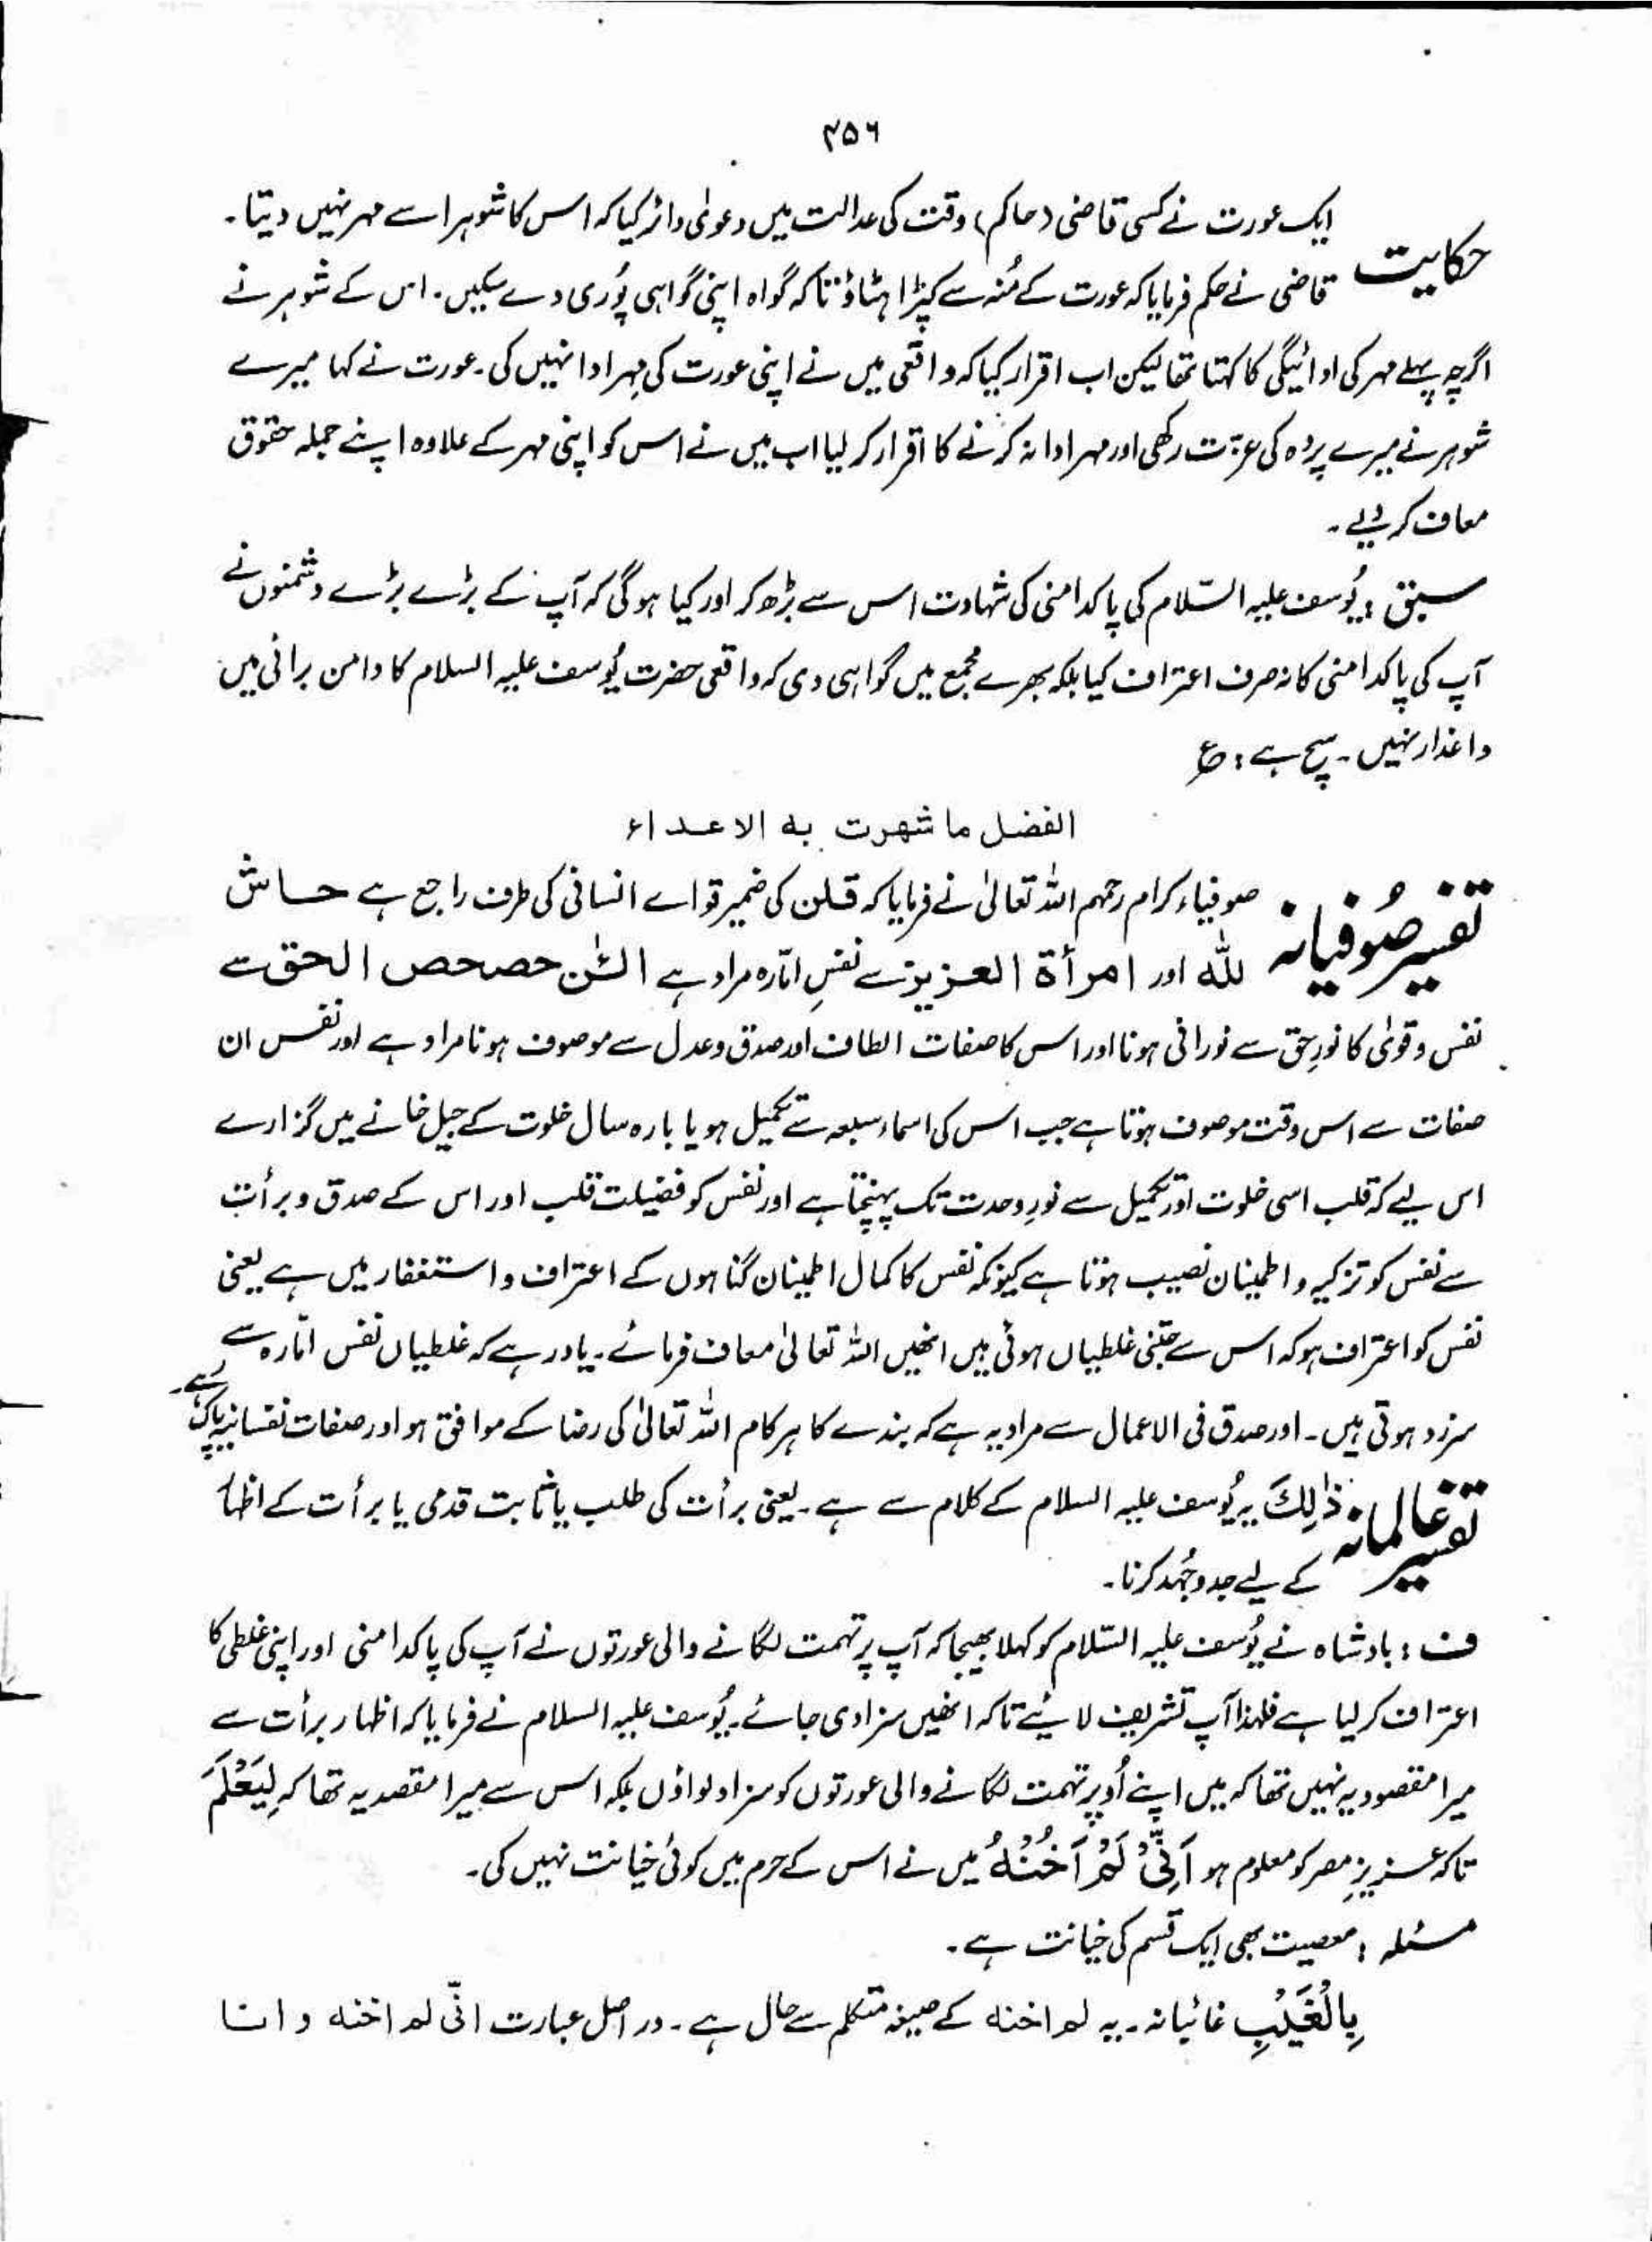 ۴۵۶
حکایت ایک عورت نے کسی قاضی (حاکم) وقت کی عدالت میں دعوٰی دائر کیا کہ اس کا شوہر اسے مہر نہیں دیتا۔
قاضی نے حکم فرمایا کہ عورت کے مُنہ سے کپڑا ہٹاؤ تاکہ گواہ اپنی گواہی پُوری دے سکیں۔ اس کے شوہر نے
اگرچہ پہلے مہر کی ادائیگی کا کہتا تھا لیکن اب اقرار کیا کہ واقعی میں نے اپنی عورت کی مہر ادا نہیں کی۔ عورت نے کہا میرے
شوہر نے میرے پردہ کی عزّت رکھی اور مہر ادا نہ کرنے کا اقرار کر لیا اب میں نے اس کو اپنی مہر کے علاوہ اپنے جملہ حقوق
معاف کر دیے۔
سبق : یُوسف علیہ السّلام کی پاکدامنی کی شہادت اس سے بڑھ کر اور کیا ہوگی کہ آپ کے بڑے بڑے دشمنوں نے
آپ کی پاکدامنی کا نہ صرف اعتراف کیا بلکہ بھرے مجمع میں گواہی دی کہ واقعی حضرت یُوسف علیہ السلام کا دامن برائی میں
داغدار نہیں۔ سچ ہے : ع
الفضل ما شهرت به الاعداء
تفسیر صُوفیانہ صوفیاء کرام رحمہم اللہ تعالیٰ نے فرمایا کہ قلن کی ضمیر قوائے انسانی کی طرف راجع ہے حاش
للّٰہ اور امرأة العزیز سے نفسِ امّارہ مراد ہے الئٰن حصحص الحق سے
نفس و قویٰ کا نورِ حق سے نورانی ہونا اور اس کا صفات الطاف اور صدق و عدل سے موصوف ہونا مراد ہے اور نفس ان
صفات سے اس وقت موصوف ہوتا ہے جب اس کی اسماء سبعہ سے تکمیل ہو یا بارہ سال خلوت کے جیل خانے میں گزارے
اس لیے کہ قلب اسی خلوت اور تکمیل سے نورِ وحدت تک پہنچتا ہے اور نفس کو فضیلت قلب اور اس کے صدق و برأت
سے نفس کو تزکیہ و اطمینان نصیب ہوتا ہے کیونکہ نفس کا کمال اطمینان گناہوں کے اعتراف و استغفار میں ہے یعنی
نفس کو اعتراف ہو کہ اس سے جتنی غلطیاں ہوئی ہیں انھیں اللہ تعالیٰ معاف فرمائے۔ یاد رہے کہ غلطیاں نفس امّارہ سے
سرزد ہوتی ہیں۔ اور صدق فی الاعمال سے مراد یہ ہے کہ بندے کا ہر کام اللہ تعالیٰ کی رضا کے موافق ہو اور صفات نفسانیہ پاک رہے۔
تفسیر عالمانہ ذٰلِكَ یہ یُوسف علیہ السلام کے کلام سے ہے۔ یعنی برأت کی طلب یا ثابت قدمی یا برأت کے اظہار
کے لیے جدوجُہد کرنا۔
ف : بادشاہ نے یُوسف علیہ السّلام کو کہلا بھیجا کہ آپ پر تہمت لگانے والی عورتوں نے آپ کی پاکدامنی اور اپنی غلطی کا
اعتراف کر لیا ہے فلہٰذا آپ تشریف لائیے تاکہ انھیں سزا دی جائے۔ یُوسف علیہ السلام نے فرمایا کہ اظہار برأت سے
میرا مقصود یہ نہیں تھا کہ میں اپنے اُوپر تہمت لگانے والی عورتوں کو سزا دلواؤں بلکہ اس سے میرا مقصد یہ تھا کہ لِيَعْلَمَ
تاکہ عزیزِ مصر کو معلوم ہو اَنِّيْ لَمْ اَخُنْهُ میں نے اس کے حرم میں کوئی خیانت نہیں کی۔
مسئلہ : معصیت بھی ایک قسم کی خیانت ہے۔
بِالْغَيْبِ غائبانہ۔ یہ لم اخنه کے صیغہ متکلم سے حال ہے۔ در اصل عبارت انّی لم اخنه و انا